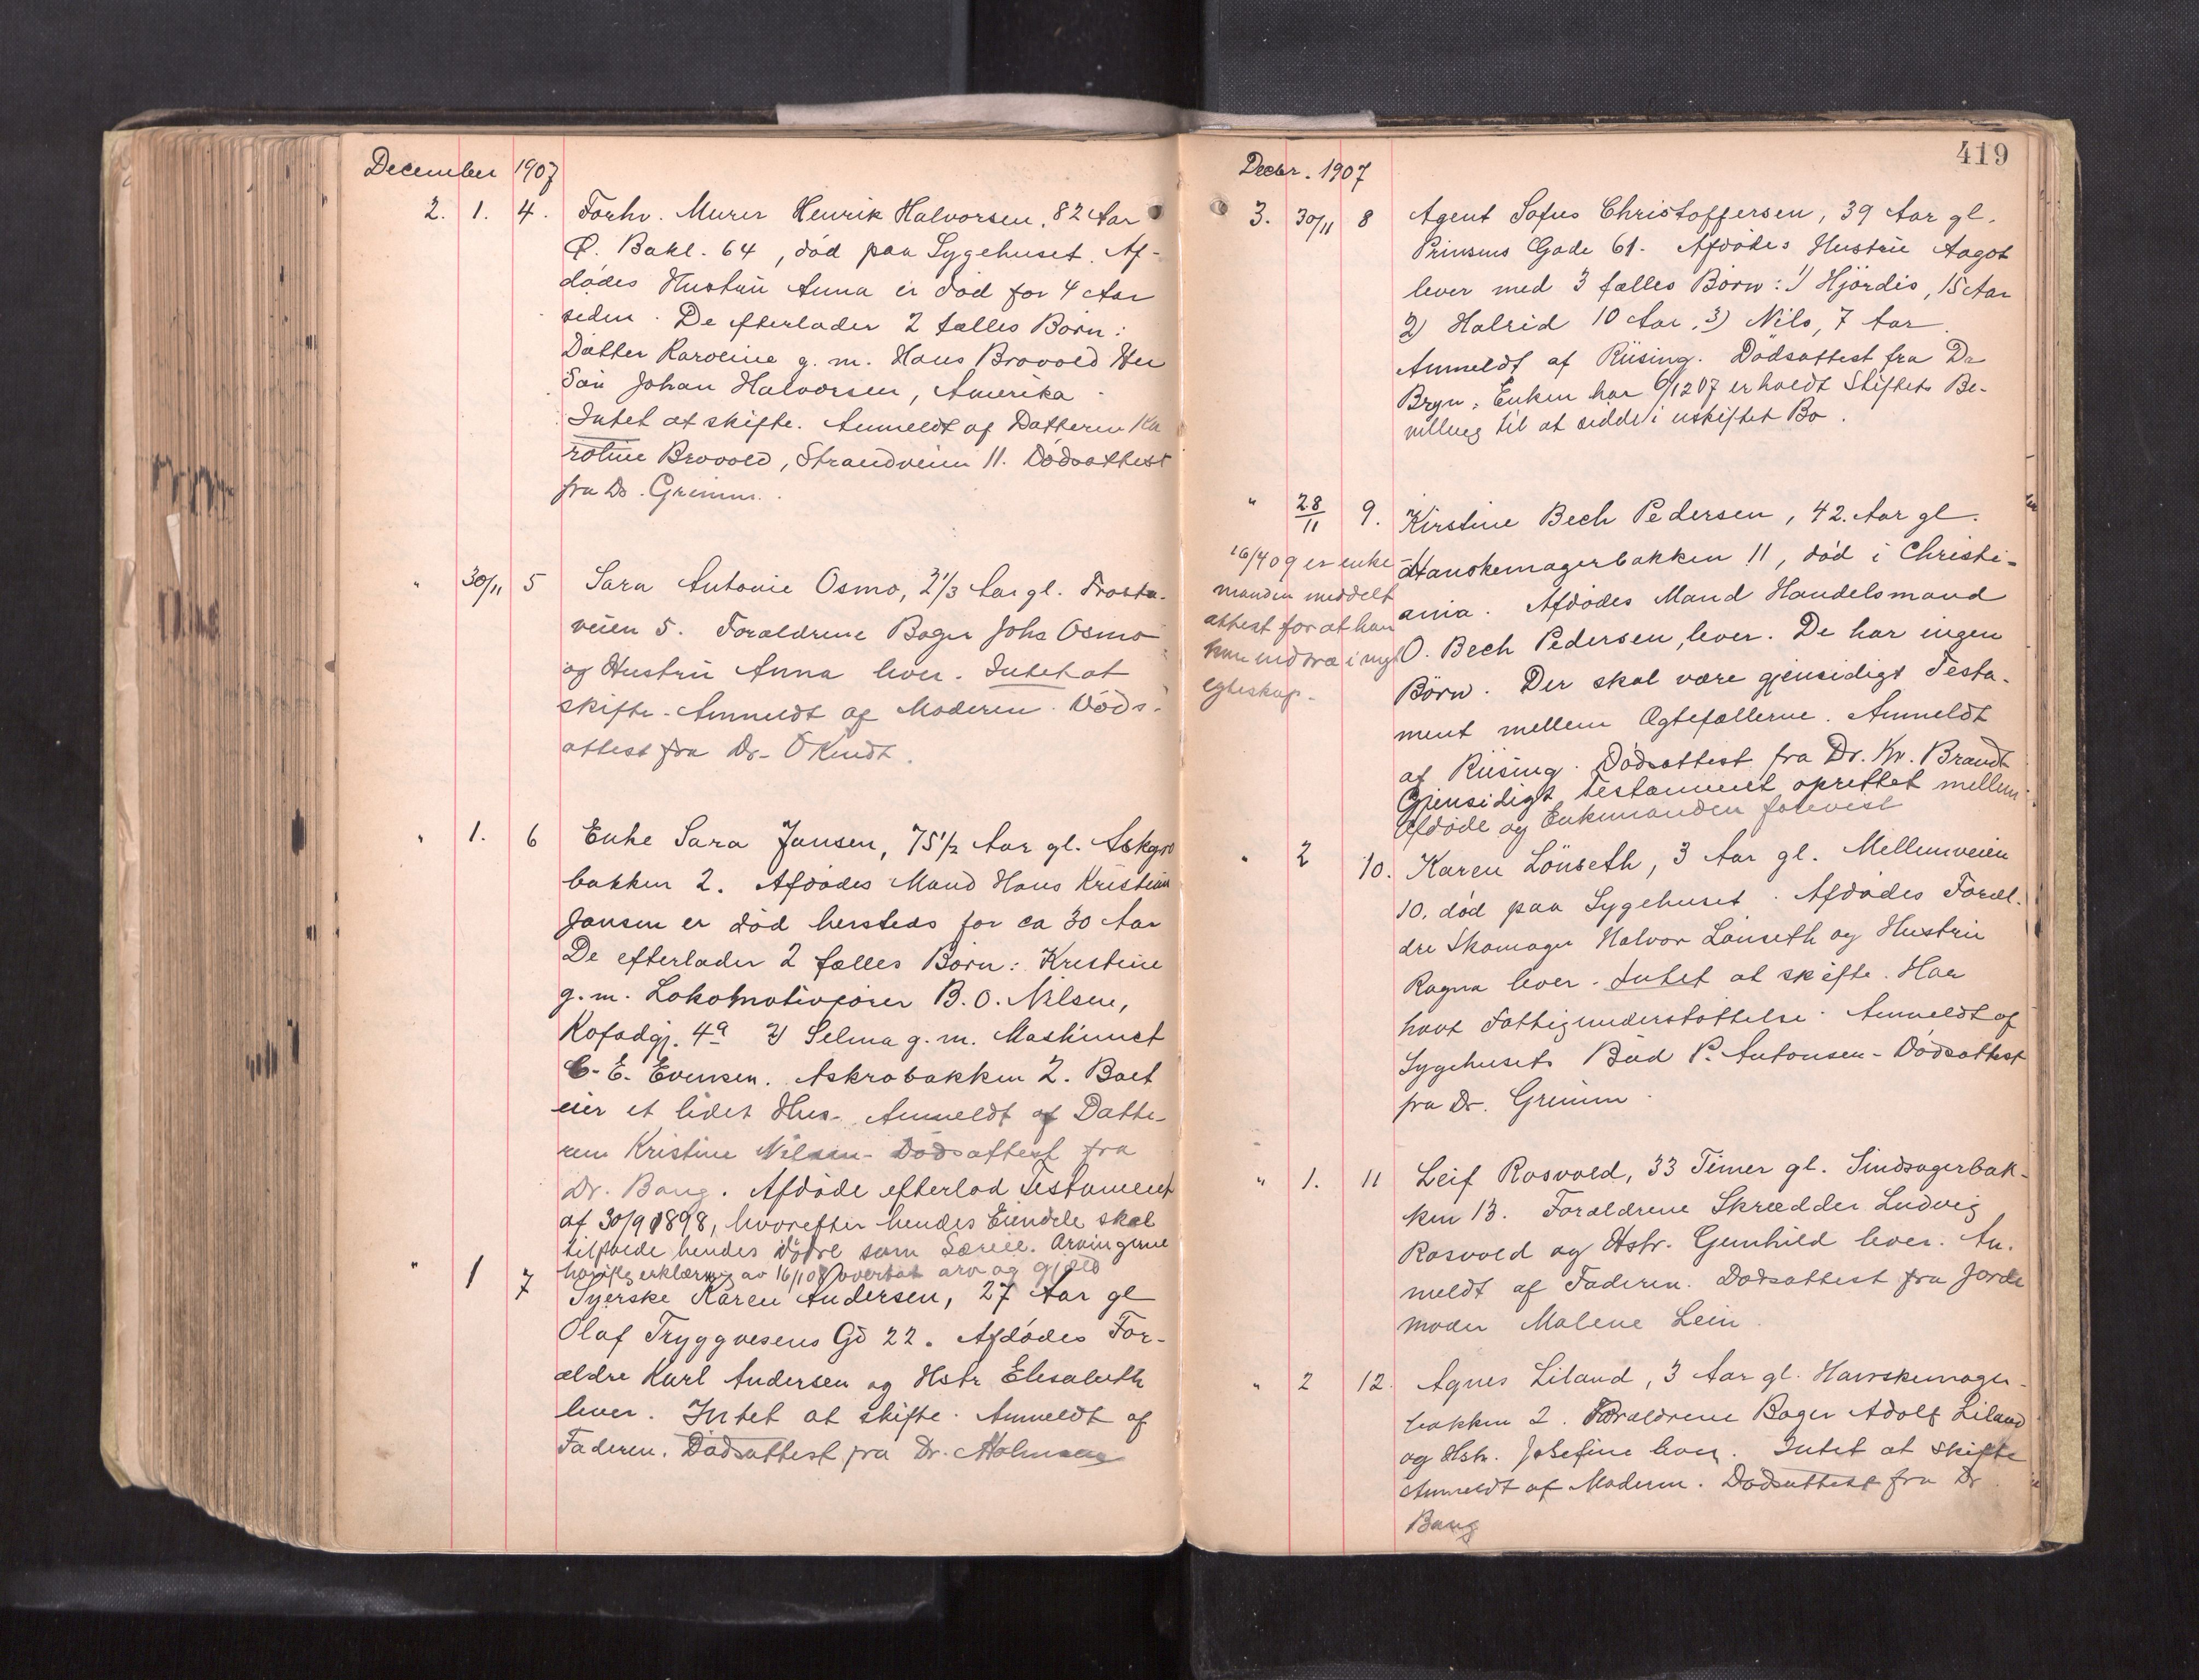 December 1907
2. 1. 4. Forhv. Murer Henrik Halvorsen, 82 Aar
Ø. Bakl. 64, död paa Sygehuset. Af-
dödes Hustru Anna er död for 4 Aar
siden. De efterlader 2 fælles Börn:
Datter Karoline g. m. Hans Brovold Her
Sön Johan Halvorsen, Amerika.
Intet at skifte. Anmeldt af Datteren Ka
roline Brovold, Strandveien 11. Dödsattest
fra Dr. Grimm.
" 30/11 5 Sara Antonie Osmo, 2 1/3 Aar gl. Frosta-
veien 5. Forældrene Bager Johs Osmo
og Hustru Anna lever. Intet at
skifte. Anmeldt af Moderen. Döds-
attest fra Dr.
" 1. 6 Enke Sara Jansen, 75 1/2 Aar gl. Askgro
bakken 2. Afdödes Mand Hans Kristian
Jansen er död hersteds for ca 30 Aar
De efterlader 2 fælles Börn: Kristine
g. m. Lokomotivförer B. O. Nilsen,
Kofodgj. 4a 2) Selma g. m. Maskinist
C. E. Evensen. Askrabakken 2. Boet
eier et lidet Hus. Anmeldt af Datte-
ren Kristine Nilsen. Dödsattest fra
Dr. Bang. Afdöde efterlod Testament
af 30/9 1898, hvorefter hendes Eiendele skal
tilfalde hendes Dötre som Særeie. Arvingerne
har iflg erklæring av 16/1 08 overtat arv og gjæld
" 1 7 Syerske Karen Andersen, 27 Aar gl
Olaf Tryggvesens Gd 22. Afdödes For-
ældre Karl Andersen og Hstr Elisabeth
lever. Intet at skifte. Anmeldt af
Faderen. Dödsattest fra Dr. Holmsen
419
Decbr. 1907
3. 30/11 8 Agent Sofus Christoffersen, 39 Aar gl.
Prinsens Gade 61. Afdödes Hustru Aagot
lever med 3 fælles Börn: 1) Hjördis, 15 Aar
2) Halrid 10 Aar, 3) Nils, 7 Aar.
Anmeldt af Riising. Dödsattest fra Dr
Bryn. Enken har 6/12 07 erholdt Skiftets Be-
villing til at sidde i uskiftet Bo.
" 28/11 9. Kirstine Bech Pedersen, 42 Aar gl.
Hanskemagerbakken 11, död i Christi-
ania. Afdödes Mand Handelsmand
O. Bech Pedersen, lever. De har ingen
Börn. Der skal være gjensidigt Testa-
ment mellem Ægtefællerne. Anmeldt
af Riising. Dödsattest fra Dr. Kr. Brandt
Gjensidigt Testament oprettet mellem
Afdöde og Enkemanden forevist
16/4 09 er enke-
manden meddelt
attest for at han
kan indtræ i nyt
egteskap.
" 2 10. Karen Lönseth, 3 Aar gl. Mellemveien
10, död paa Sygehuset. Afdödes Foræl-
dre Skomager Halvor Lönseth og Hustru
Ragna lever. Intet at skifte. Har
havt Fattigunderstöttelse. Anmeldt af
Sygehusets Bud P. Antonsen. Dödsattest
fra Dr. Grimm.
" 1. 11 Leif Rosvold, 33 Timer gl. Sindsagerbak-
ken 13. Forældrene Skrædder Ludvig
Rosvold og Hstr. Gunhild lever. An-
meldt af Faderen. Dödsattest fra Jorde
moder Malene Lein.
" 2 12. Agnes Liland, 3 Aar gl. Hanskemager-
bakken 2. Forældrene Bager Adolf Liland
og Hstr. Josefine lever. Intet at skifte
Anmeldt af Moderen. Dödsattest fra Dr
Bang